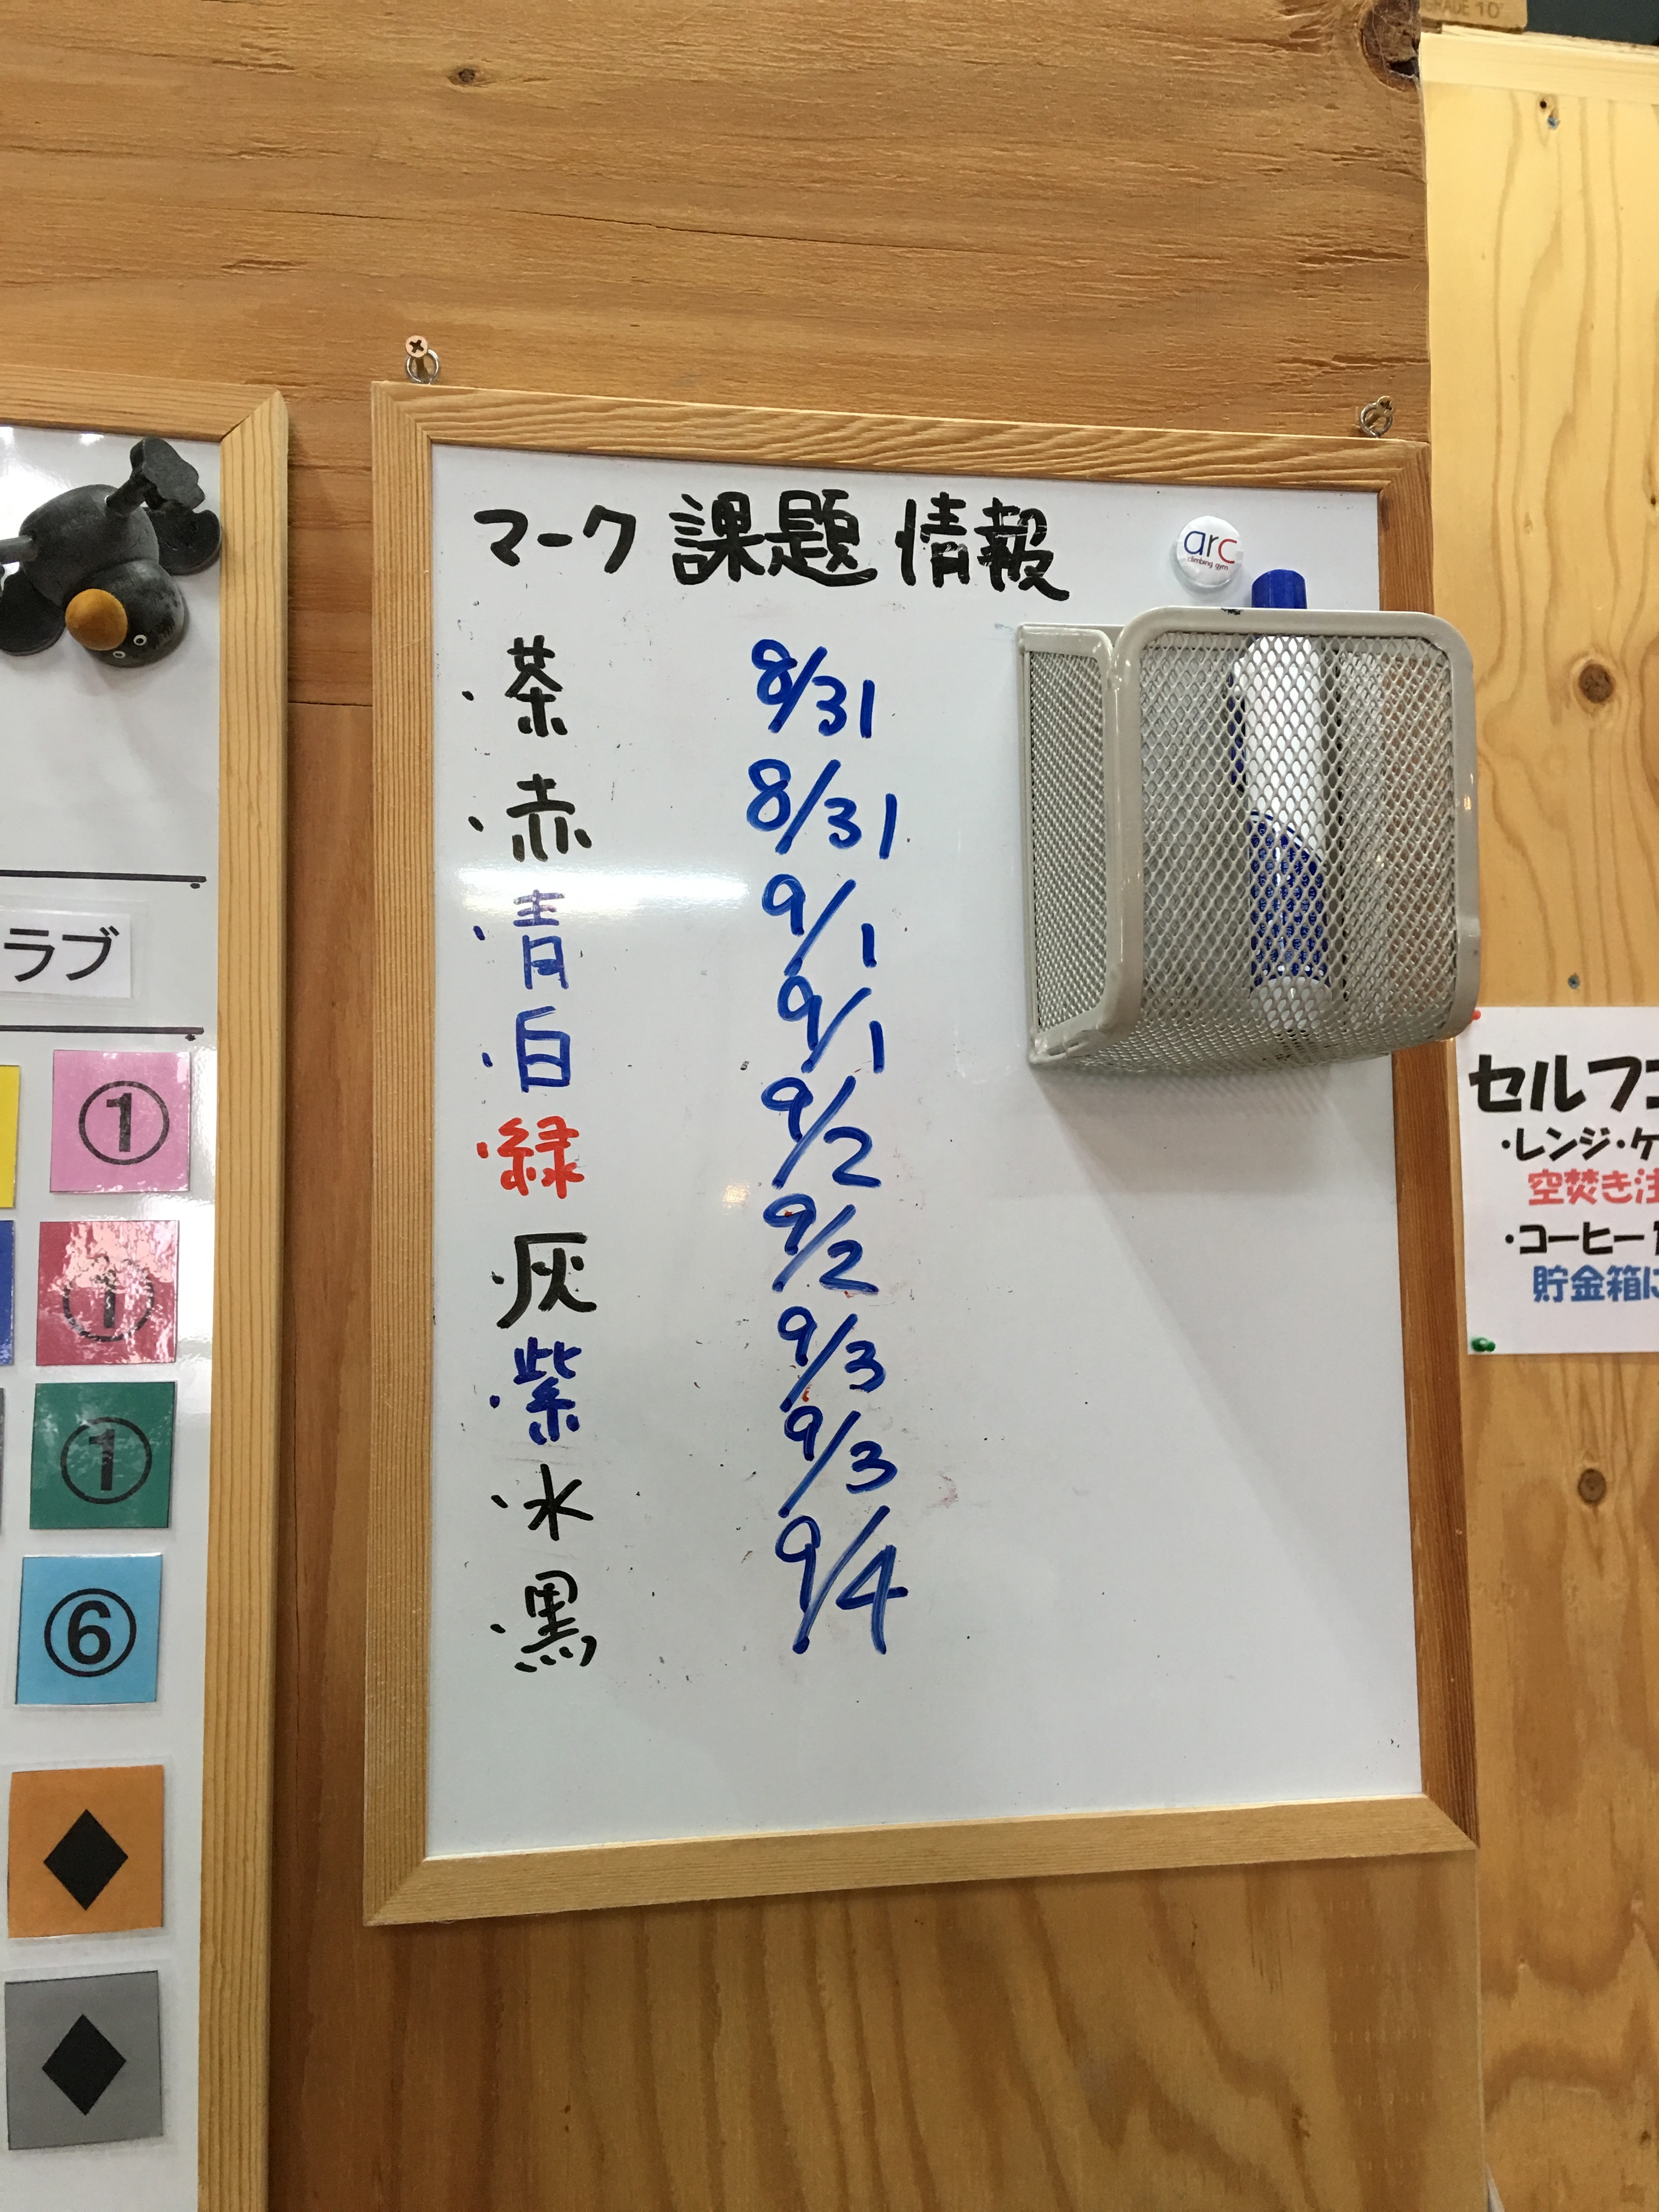 GRADE 10
マーク 課題 情報
arc
climbing gym
・茶 8/31
・赤 8/31
・青 9/1
・白 9/1
・緑 9/2
・灰 9/2
・紫 9/3
・水 9/3
・黒 9/4
ラブ
①
①
①
⑥
セルフコ
・レンジ・ケ
空焚き注
・コーヒー
貯金箱に